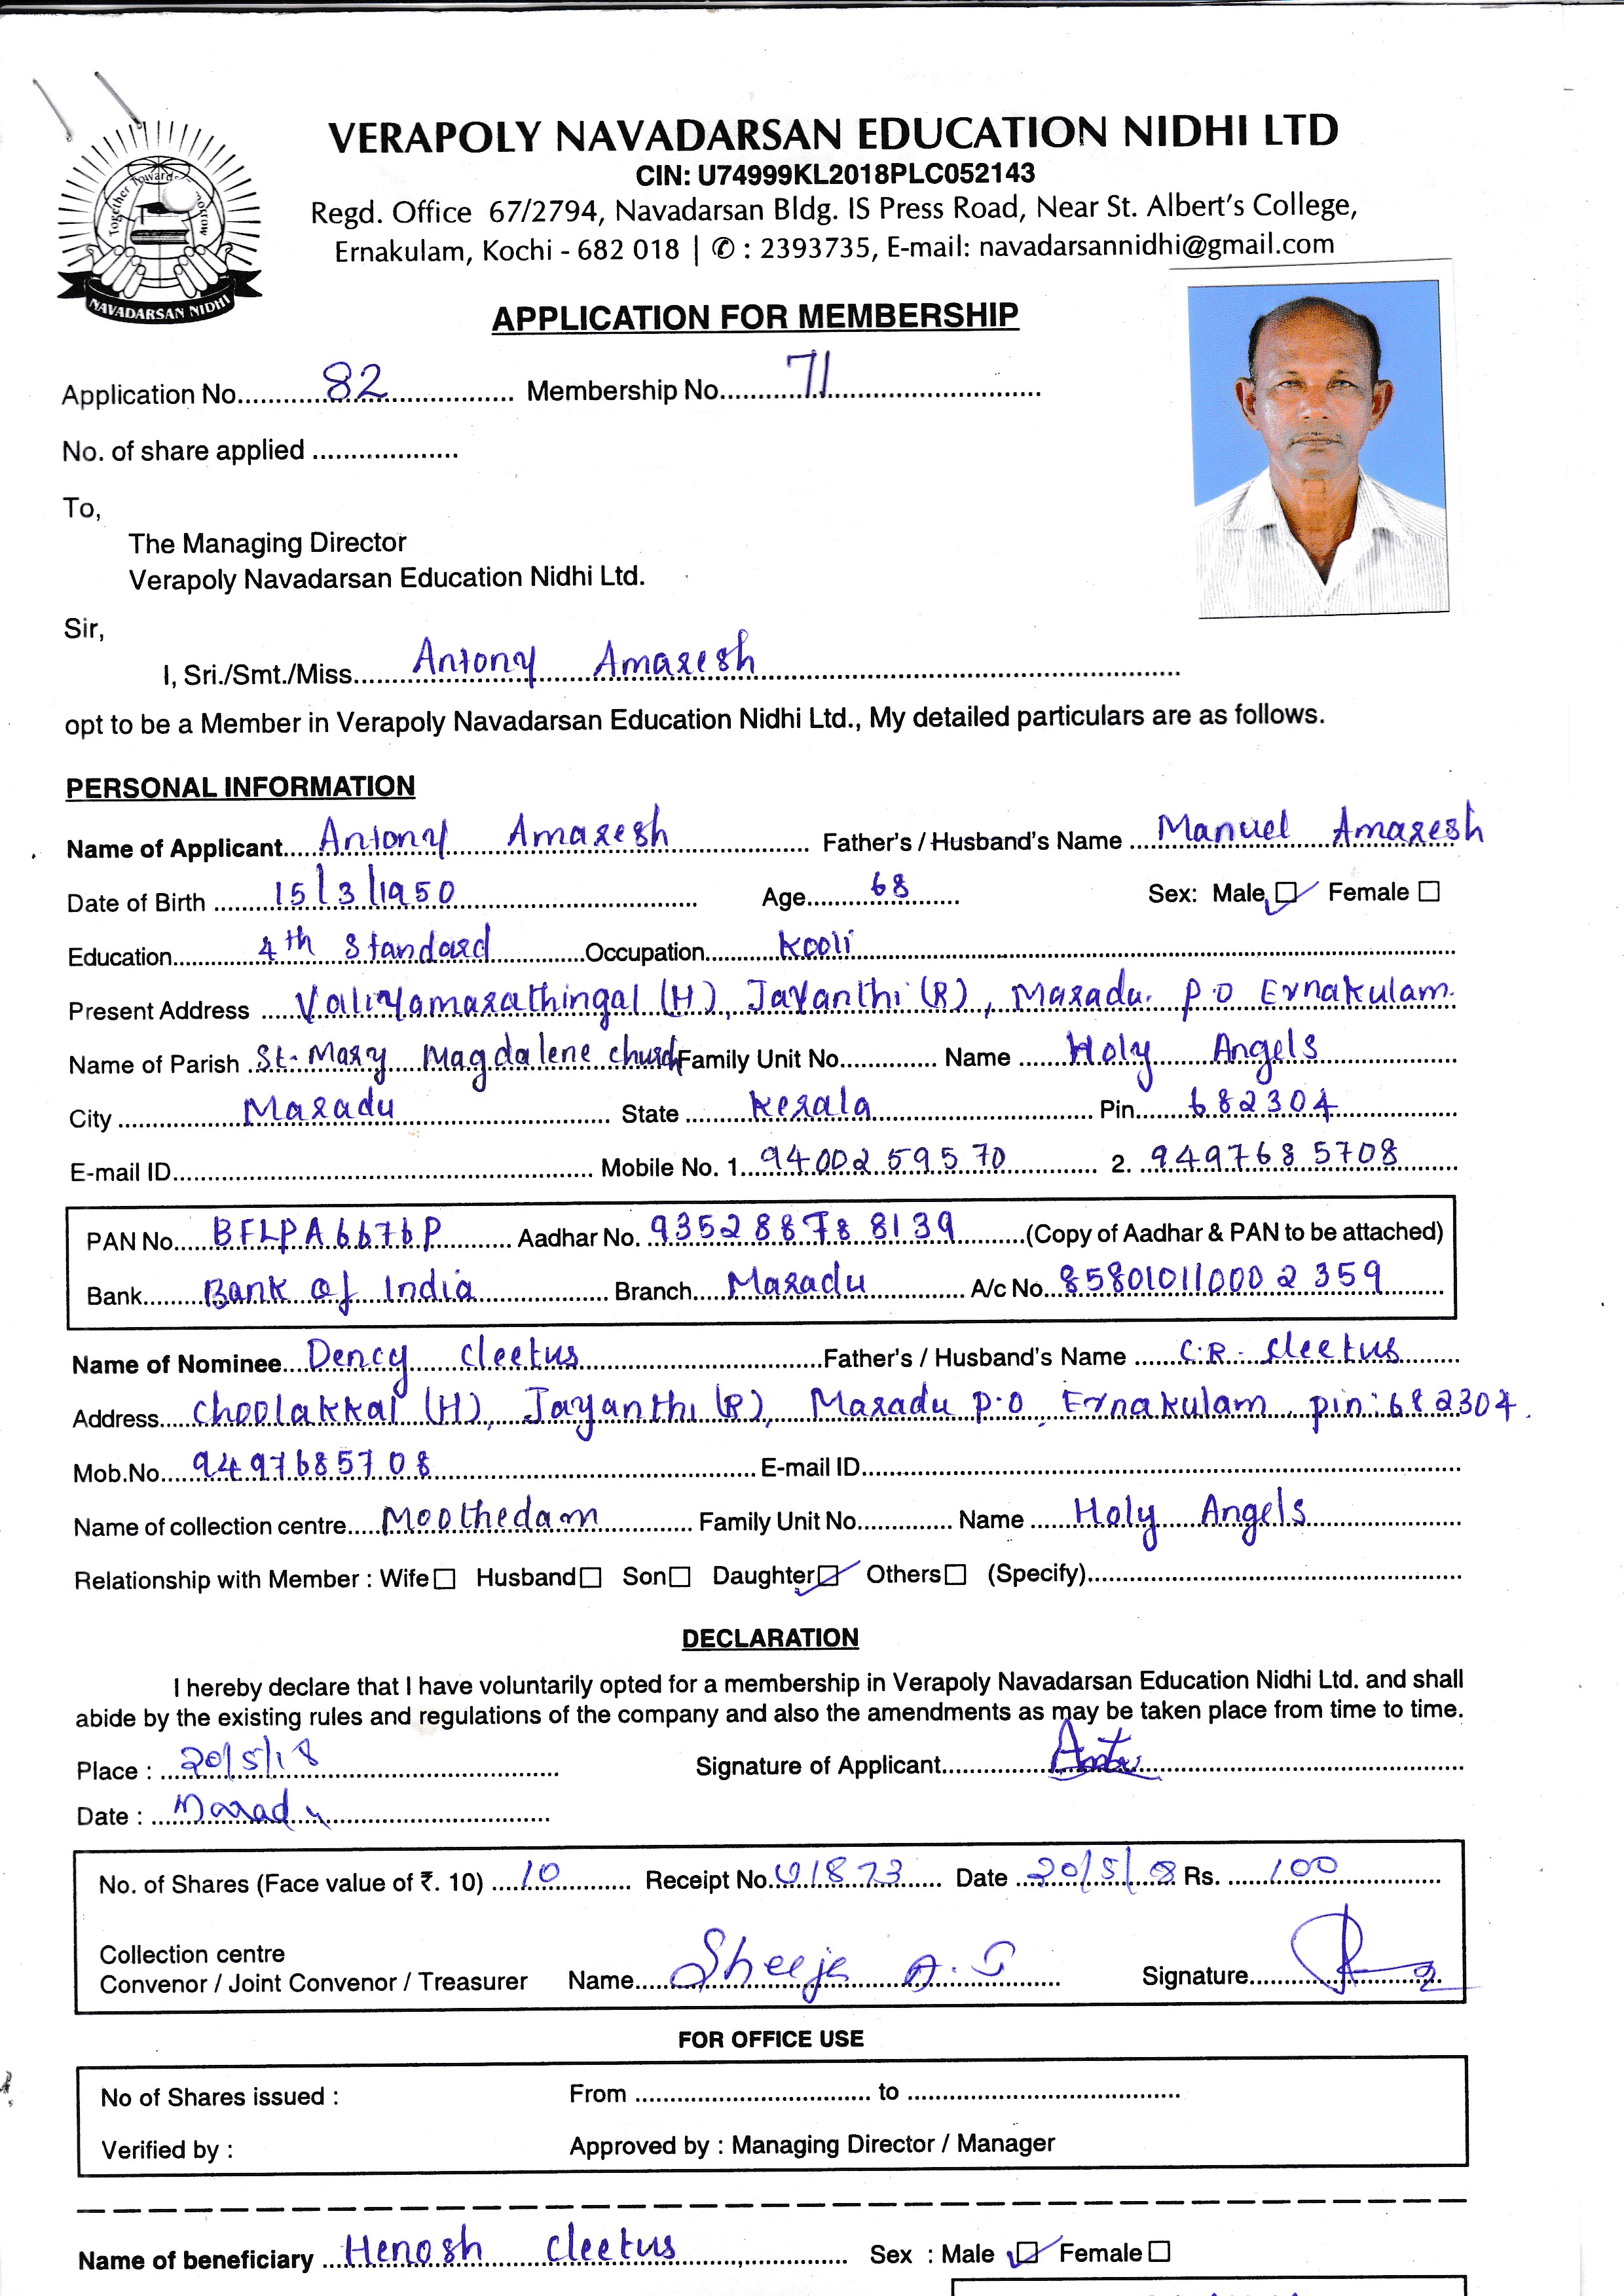 VERAPOLY NAVADARSAN EDUCATION NIDHI LTD
CIN: U74999KL2018PLC052143
Regd. Office 67/2794, Navadarsan Bldg. IS Press Road, Near St. Albert's College,
Ernakulam, Kochi - 682 018 | ✆ : 2393735, E-mail: navadarsannidhi@gmail.com
Together Toward
NAVADARSAN NIDHI
APPLICATION FOR MEMBERSHIP
Application No. 82 Membership No. 71
No. of share applied
To,
The Managing Director
Verapoly Navadarsan Education Nidhi Ltd.
Sir,
I, Sri./Smt./Miss. Antony Amaresh
opt to be a Member in Verapoly Navadarsan Education Nidhi Ltd., My detailed particulars are as follows.
PERSONAL INFORMATION
Name of Applicant Antony Amaresh Father's / Husband's Name Manuel Amaresh
Date of Birth 15/3/1950 Age 68 Sex: Male ☑ Female ☐
Education 4th Standard Occupation Kooli
Present Address Valiyamarathingal (H), Jayanthi (R), Maradu. P.O Ernakulam.
Name of Parish St. Mary Magdalene church Family Unit No. Name Holy Angels
City Maradu State Kerala Pin 682304
E-mail ID Mobile No. 1. 9400259570 2. 9497685708
PAN No. BFLPA6676P Aadhar No. 935288788139 (Copy of Aadhar & PAN to be attached)
Bank Bank of India Branch Maradu A/c No. 858010110002359
Name of Nominee Dency Cleetus Father's / Husband's Name C.R. Cleetus
Address Choolakkal (H), Jayanthi (R), Maradu P.O, Ernakulam, pin:682304.
Mob.No. 9497685708 E-mail ID
Name of collection centre Moothedam Family Unit No. Name Holy Angels
Relationship with Member : Wife ☐ Husband ☐ Son ☐ Daughter ☑ Others ☐ (Specify)
DECLARATION
I hereby declare that I have voluntarily opted for a membership in Verapoly Navadarsan Education Nidhi Ltd. and shall
abide by the existing rules and regulations of the company and also the amendments as may be taken place from time to time.
Place : 20/5/18 Signature of Applicant
Date : Maradu
No. of Shares (Face value of ₹. 10) 10 Receipt No. 01873 Date 20/5/18 Rs. 100
Collection centre
Convenor / Joint Convenor / Treasurer Name Sheeja A.J Signature
FOR OFFICE USE
No of Shares issued : From to
Verified by : Approved by : Managing Director / Manager
Name of beneficiary Henosh Cleetus Sex : Male ☑ Female ☐